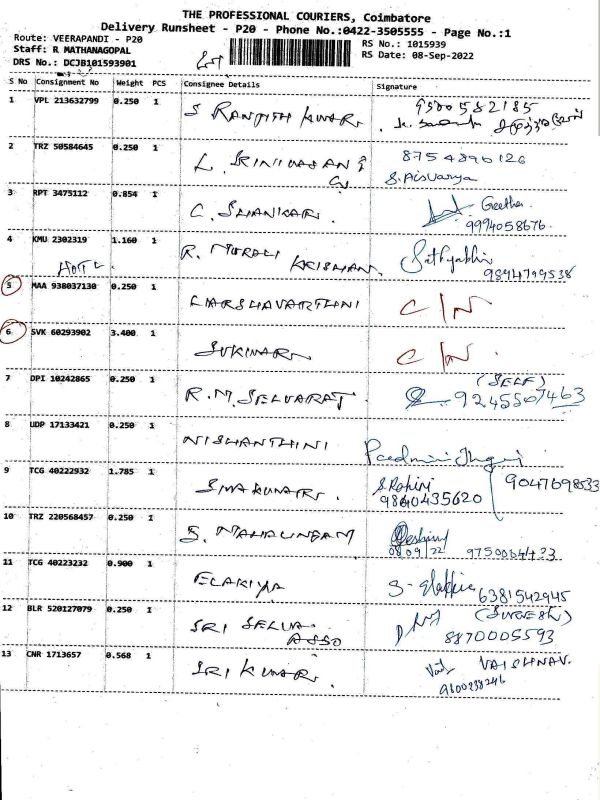 THE PROFESSIONAL COURIERS, Coimbatore
Delivery Runsheet - P20 - Phone No.:0422-3505555 - Page No.:1
Route: VEERAPANDI - P20
RS No.: 1015939
Staff: R MATHANAGOPAL
RS Date: 08-Sep-2022
DRS No.: DCJB101593901
S No Consignment No Weight PCS Consignee Details Signature
1 VPL 213632799 0.250 1 S RANJITH KUMAR. 9500582185
2 TRZ 50584645 0.250 1 L. SRINIVASAN 8754896126
S. Aisvarya
3 RPT 3475112 0.854 1 C. SHANKAR. Geetha
9994058676.
4 KMU 2302319 1.160 1 R. MURALI KRISHAN. Sathyabhi
9894799538
5 MAA 938037130 0.250 1 HARSHAVARTHINI C/N
6 SVK 60293902 3.400 1 SUKUMAR C/N.
7 DPI 10242865 0.250 1 R.M. SELVARAJ. (SELF)
9245507463
8 UDP 17133421 0.250 1 NISHANTHINI
9 TCG 40222932 1.785 1 SIVAKUMAR. S. Rohini 9047698533
9860435620
10 TRZ 220568457 0.250 1 S. MAHALINGAM
08/09/22
11 TCG 40223232 0.900 1 ELAKIYA 6381542945
12 BLR 520127079 0.250 1 SRI SELVA ASSO (SURESH)
8870005593
13 CNR 1713657 0.568 1 SRI KUMAR. VAISHNAV.
9600238246